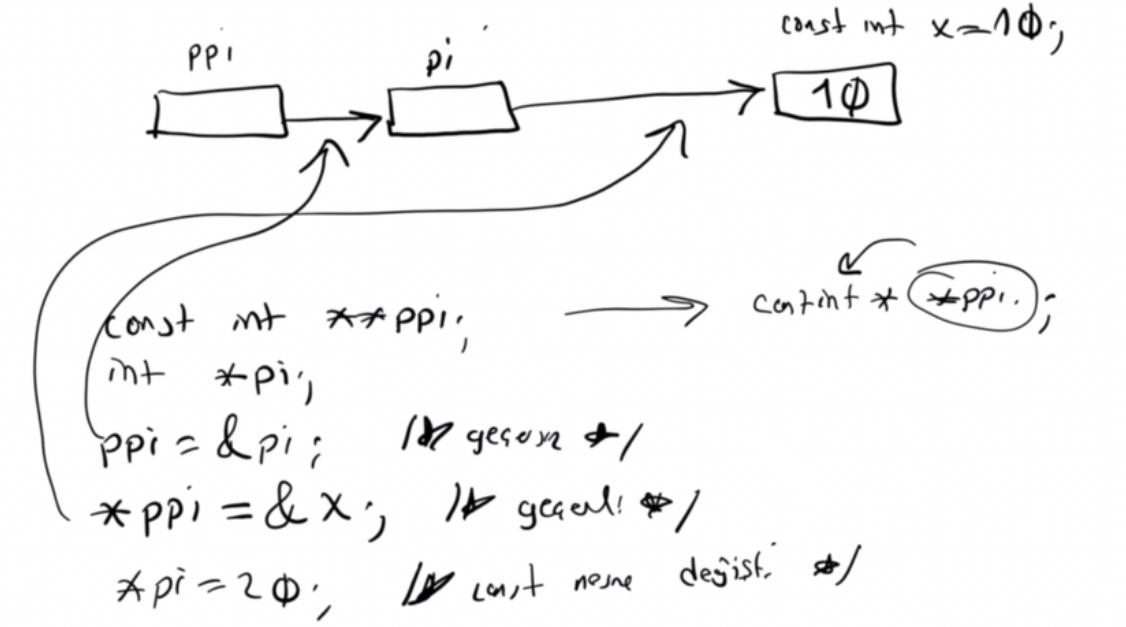 const int x=10;
ppi
pi
10
const int **ppi;
contint * *ppi.;
int *pi;
ppi = &pi; /* geçersiz */
*ppi = &x; /* geçerli */
*pi=20; /* const nesne değişti */